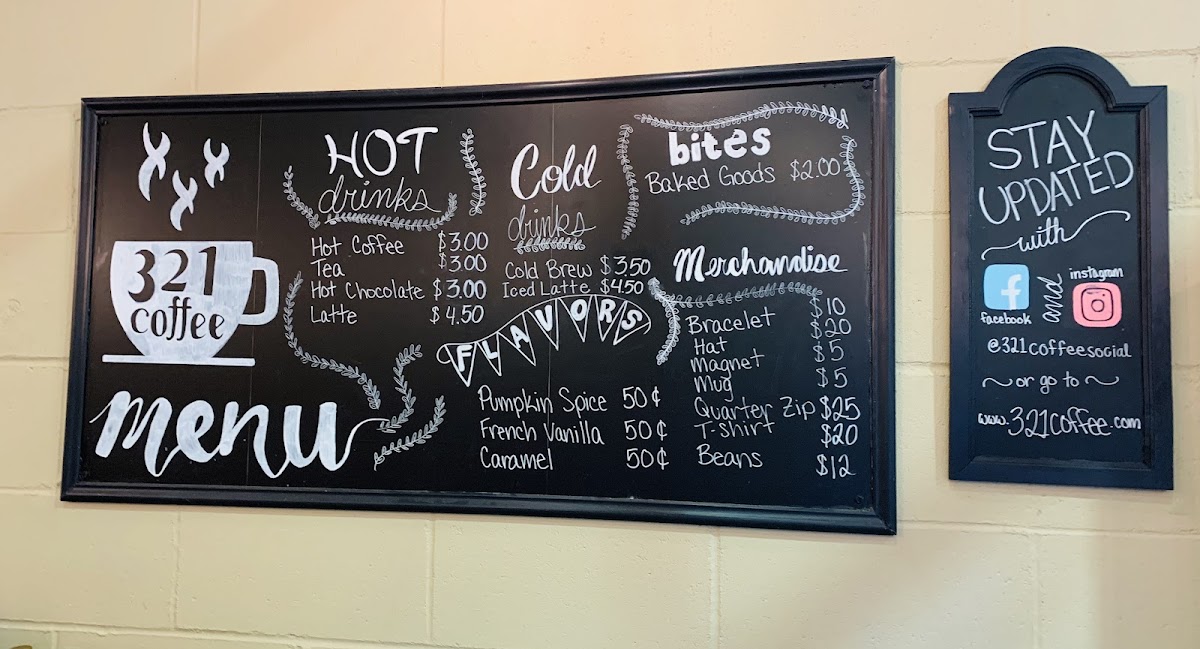 321
coffee
menu
HOT
drinks
Hot Coffee $3.00
Tea $3.00
Hot Chocolate $3.00
Latte $4.50
Cold
drinks
Cold Brew $3.50
Iced Latte $4.50
FLAVORS
Pumpkin Spice 50¢
French Vanilla 50¢
Caramel 50¢
bites
Baked Goods $2.00
Merchandise
Bracelet $10
Hat $20
Magnet $5
Mug $5
Quarter Zip $25
T-shirt $20
Beans $12
STAY
UPDATED
with
facebook and instagram
@321coffeesocial
~or go to~
www.321coffee.com